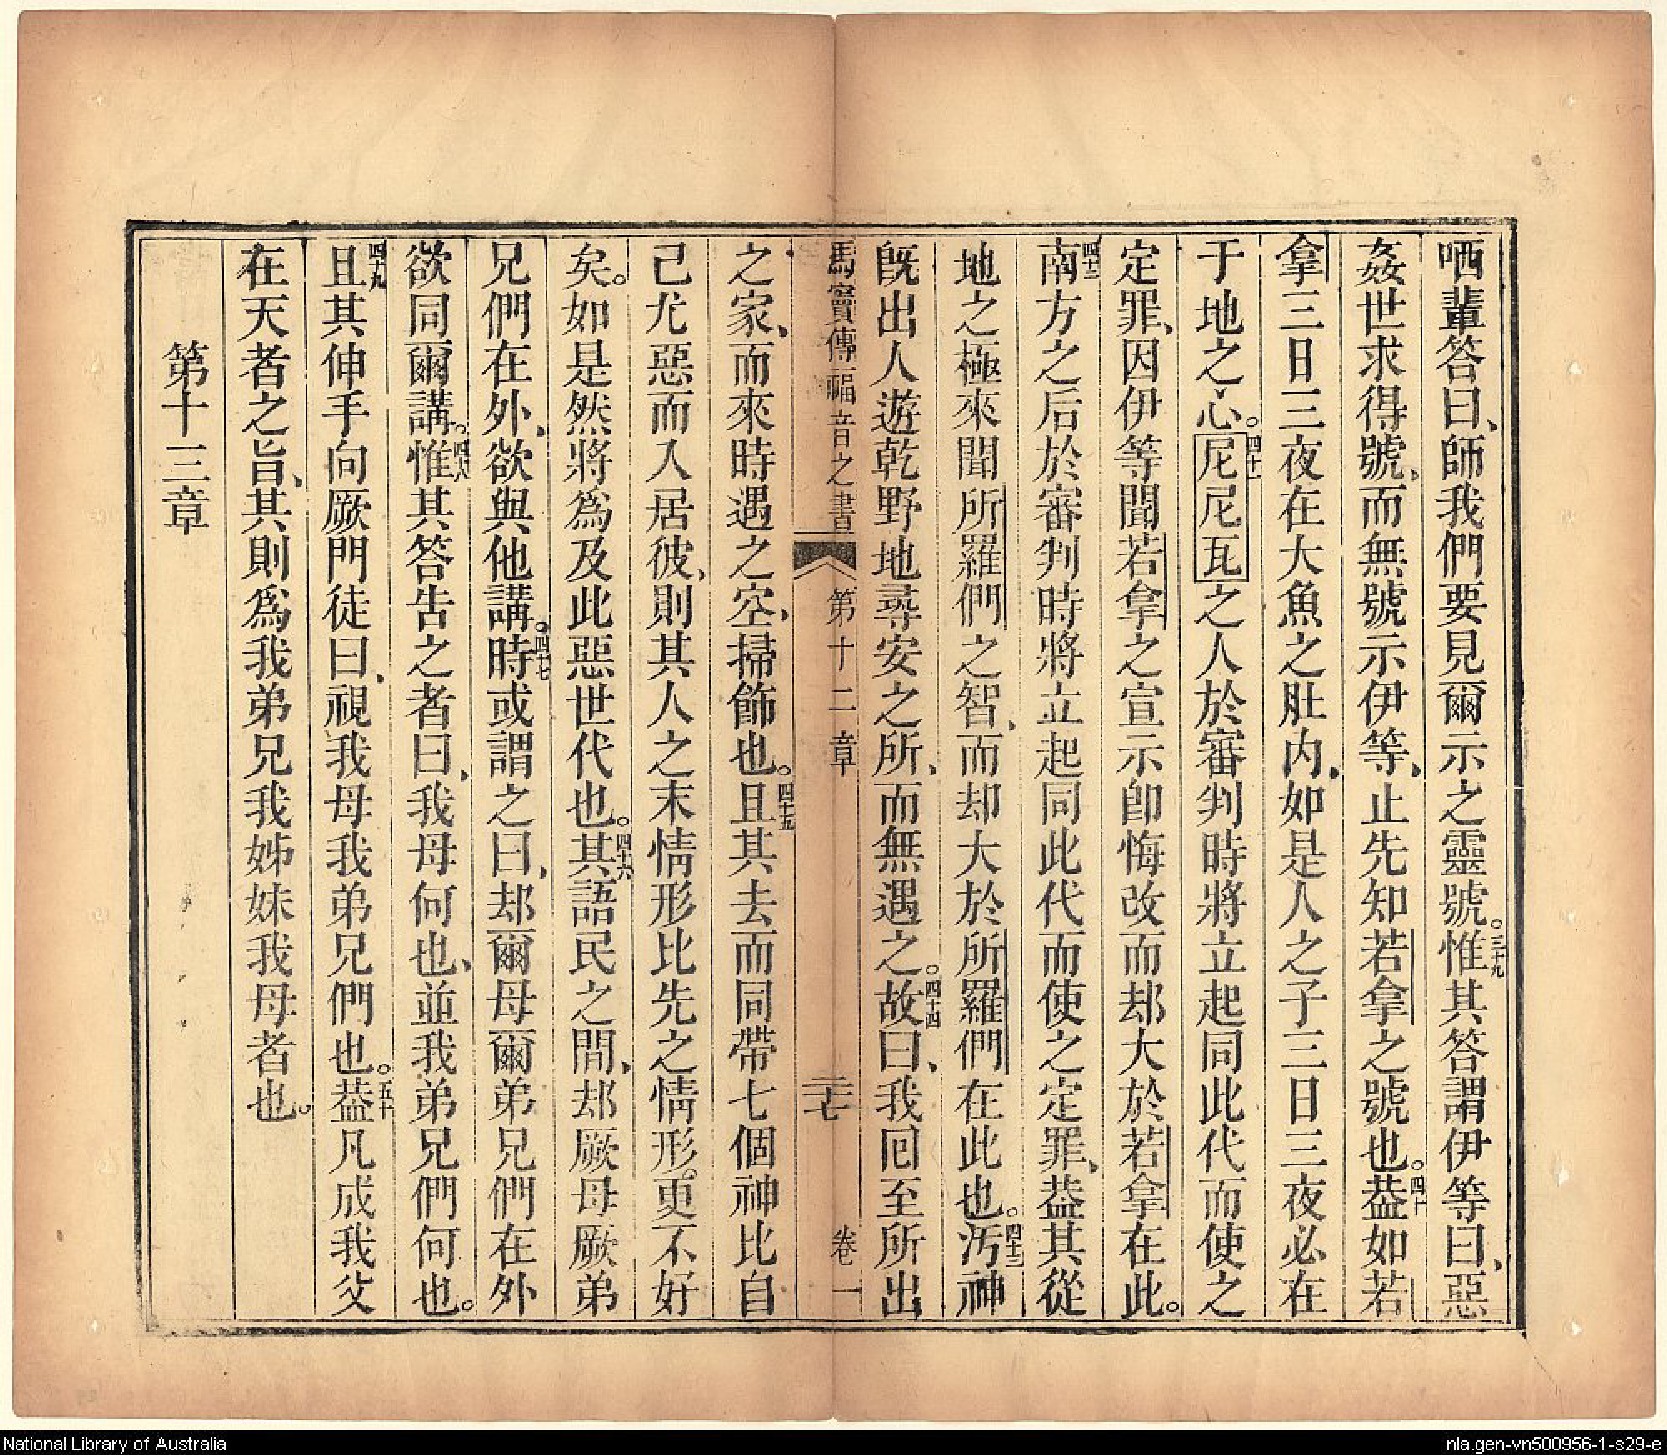 哂輩答曰、師我們要見爾示之靈號。三十九惟其答謂伊等曰、惡
姦世求得號、而無號示伊等、止先知若拿之號也。四十葢如若
拿三日三夜在大魚之肚内、如是人之子三日三夜必在
于地之心。四十一尼尼瓦之人於審判時將立起同此代而使之
定罪、因伊等聞若拿之宣示卽悔改而却大於若拿在此。
四十二南方之后於審判時將立起同此代而使之定罪、葢其從
地之極來聞所羅們之智、而却大於所羅們在此也。四十三汚神
旣出人遊乾野地尋安之所、而無遇之。四十四故曰、我囘至所出
馬竇傳福音之書 第十二章 二十七 卷一
之家、而來時遇之空、掃飾也。四十五且其去而同帶七個神比自
己尤惡而入居彼、則其人之末情形比先之情形。更不好
矣。如是然將爲及此惡世代也。四十六其語民之間、却厥母厥弟
兄們在外、欲與他講。四十七時或謂之曰、却爾母爾弟兄們在外
欲同爾講。四十八惟其答告之者曰、我母何也、並我弟兄們何也。
四十九且其伸手向厥門徒曰、視我母我弟兄們也。五十葢凡成我父
在天者之旨、其則爲我弟兄我姊妹我母者也。
第十三章
National Library of Australia
nla.gen-vn500956-1-s29-e